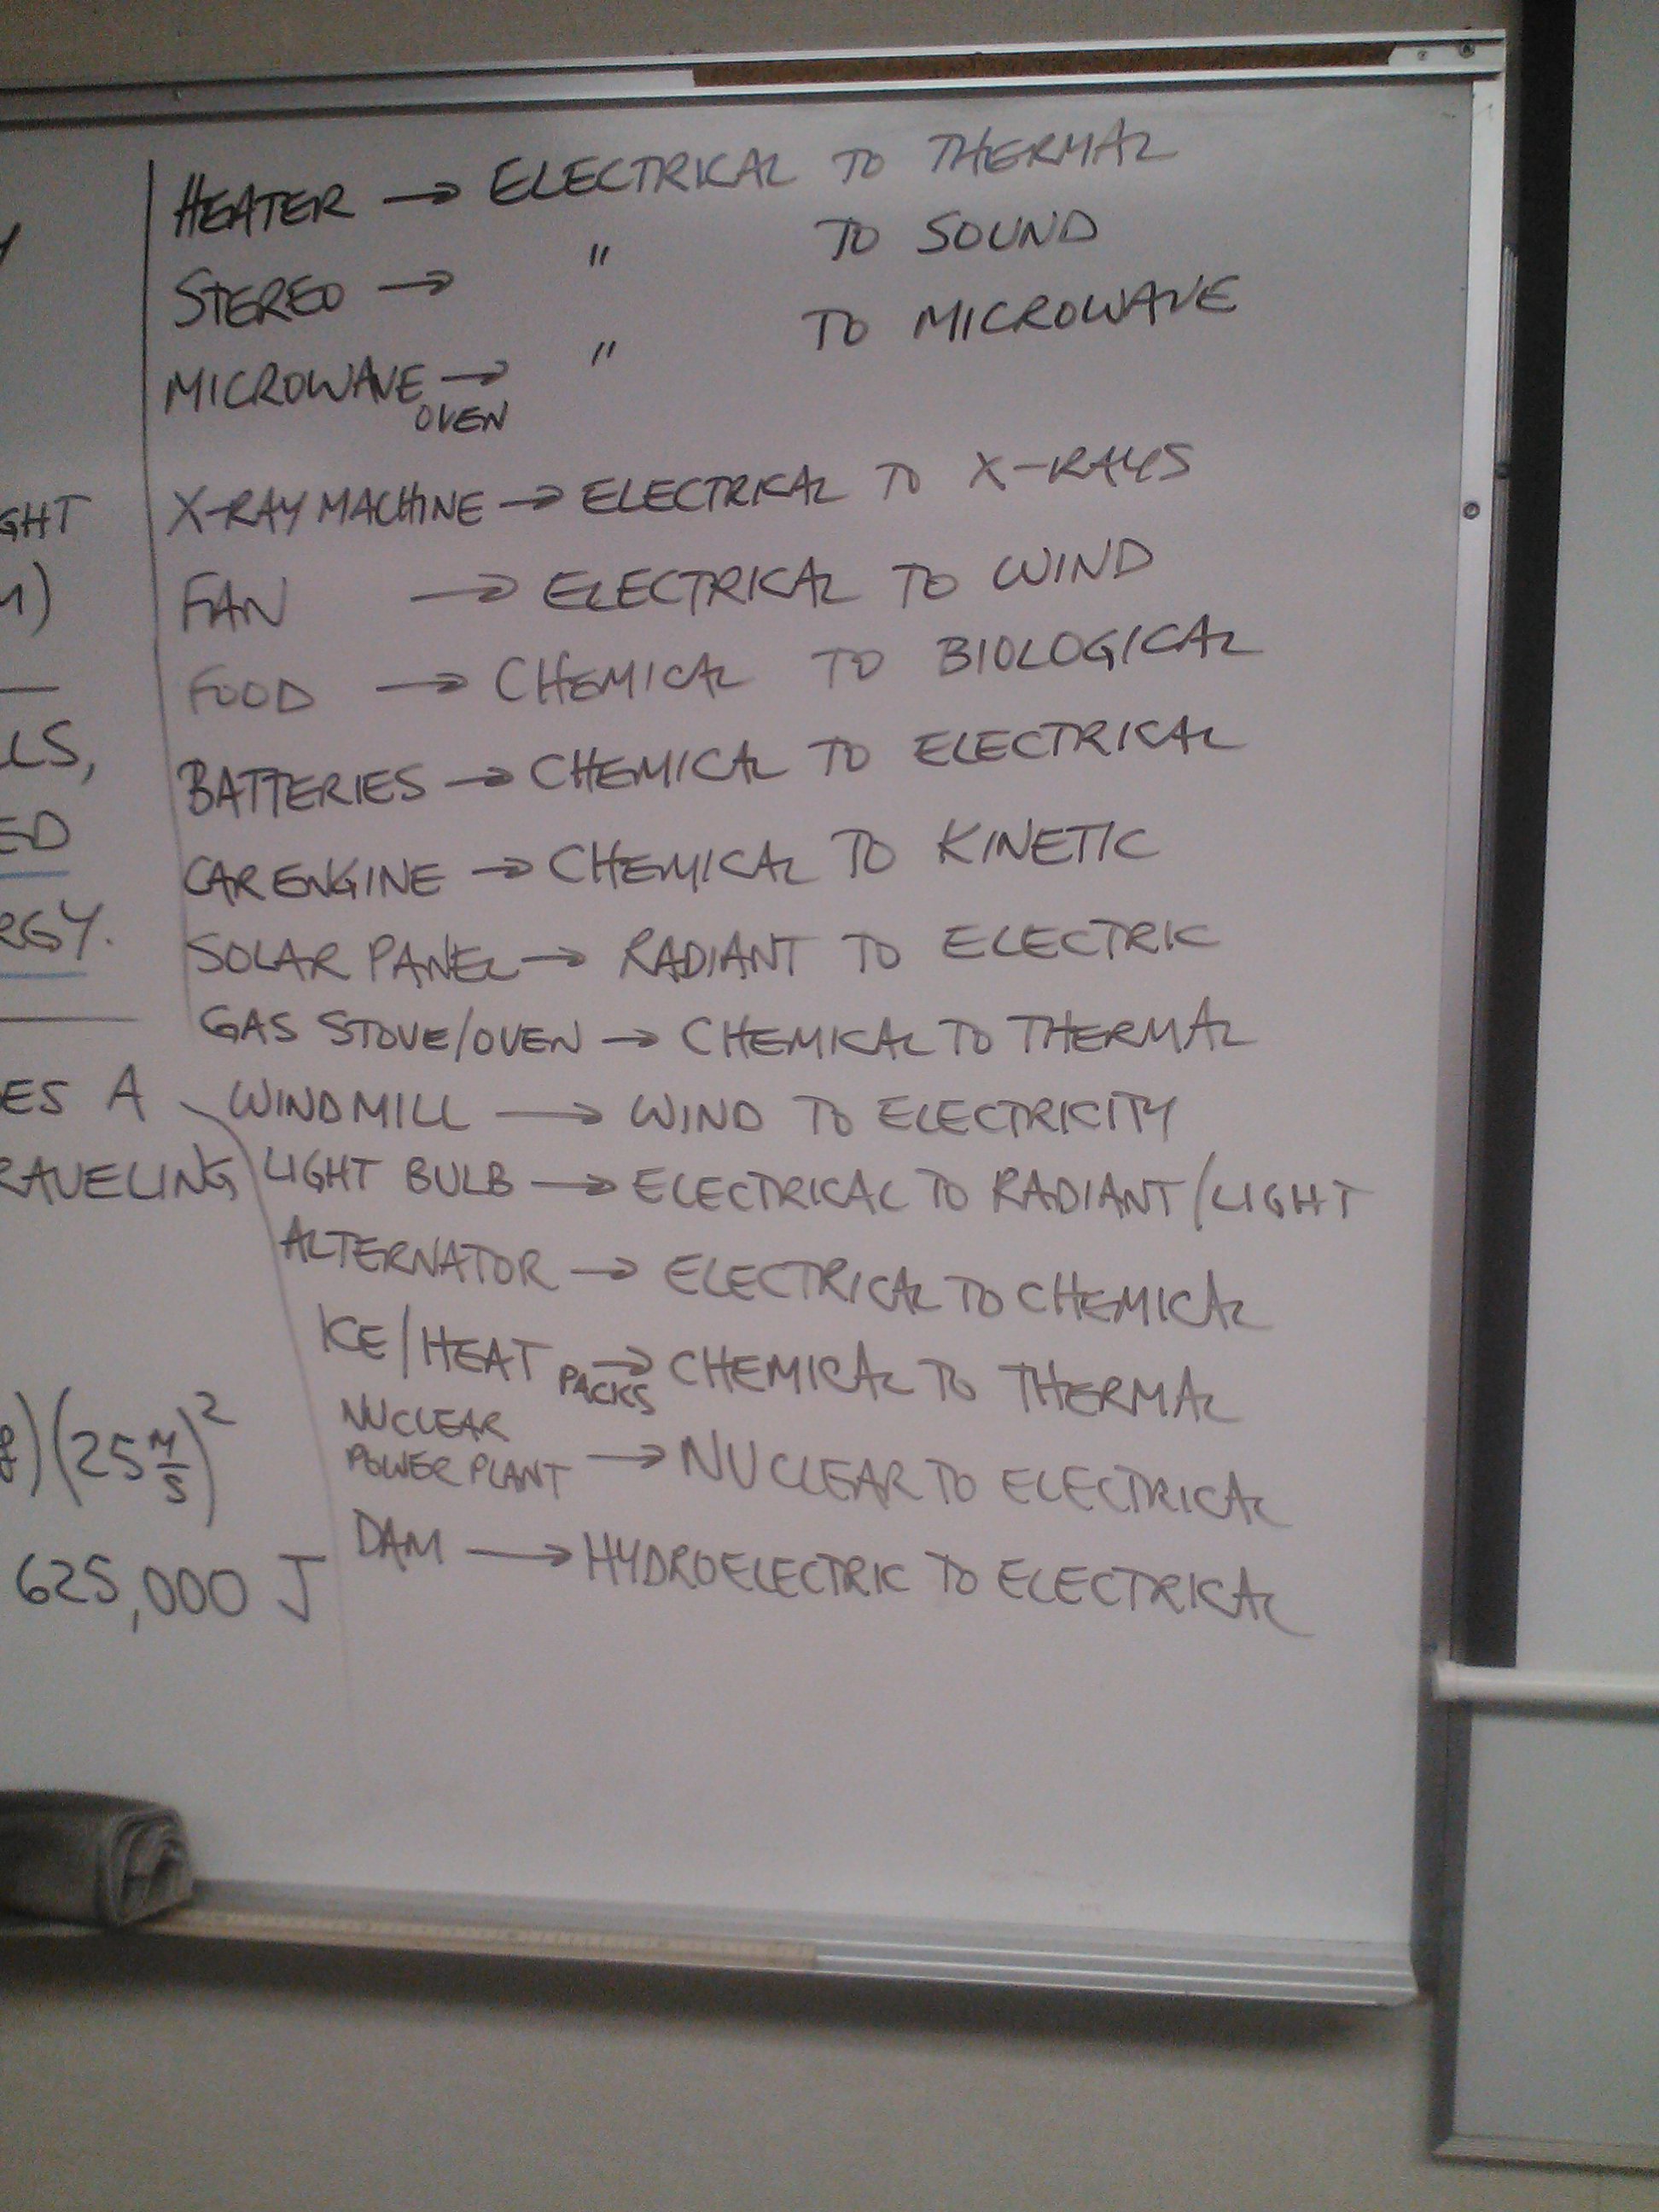 HEATER → ELECTRICAL TO THERMAL
STEREO → " TO SOUND
MICROWAVE OVEN → " TO MICROWAVE
X-RAY MACHINE → ELECTRICAL TO X-RAYS
FAN → ELECTRICAL TO WIND
FOOD → CHEMICAL TO BIOLOGICAL
BATTERIES → CHEMICAL TO ELECTRICAL
CAR ENGINE → CHEMICAL TO KINETIC
SOLAR PANEL → RADIANT TO ELECTRIC
GAS STOVE/OVEN → CHEMICAL TO THERMAL
WINDMILL → WIND TO ELECTRICITY
LIGHT BULB → ELECTRICAL TO RADIANT/LIGHT
ALTERNATOR → ELECTRICAL TO CHEMICAL
ICE/HEAT PACKS → CHEMICAL TO THERMAL
NUCLEAR
POWER PLANT → NUCLEAR TO ELECTRICAL
DAM → HYDROELECTRIC TO ELECTRICAL
GHT
M)
LLS,
ED
RGY.
ES A
RAVELING
)(25 M/S)²
625,000 J